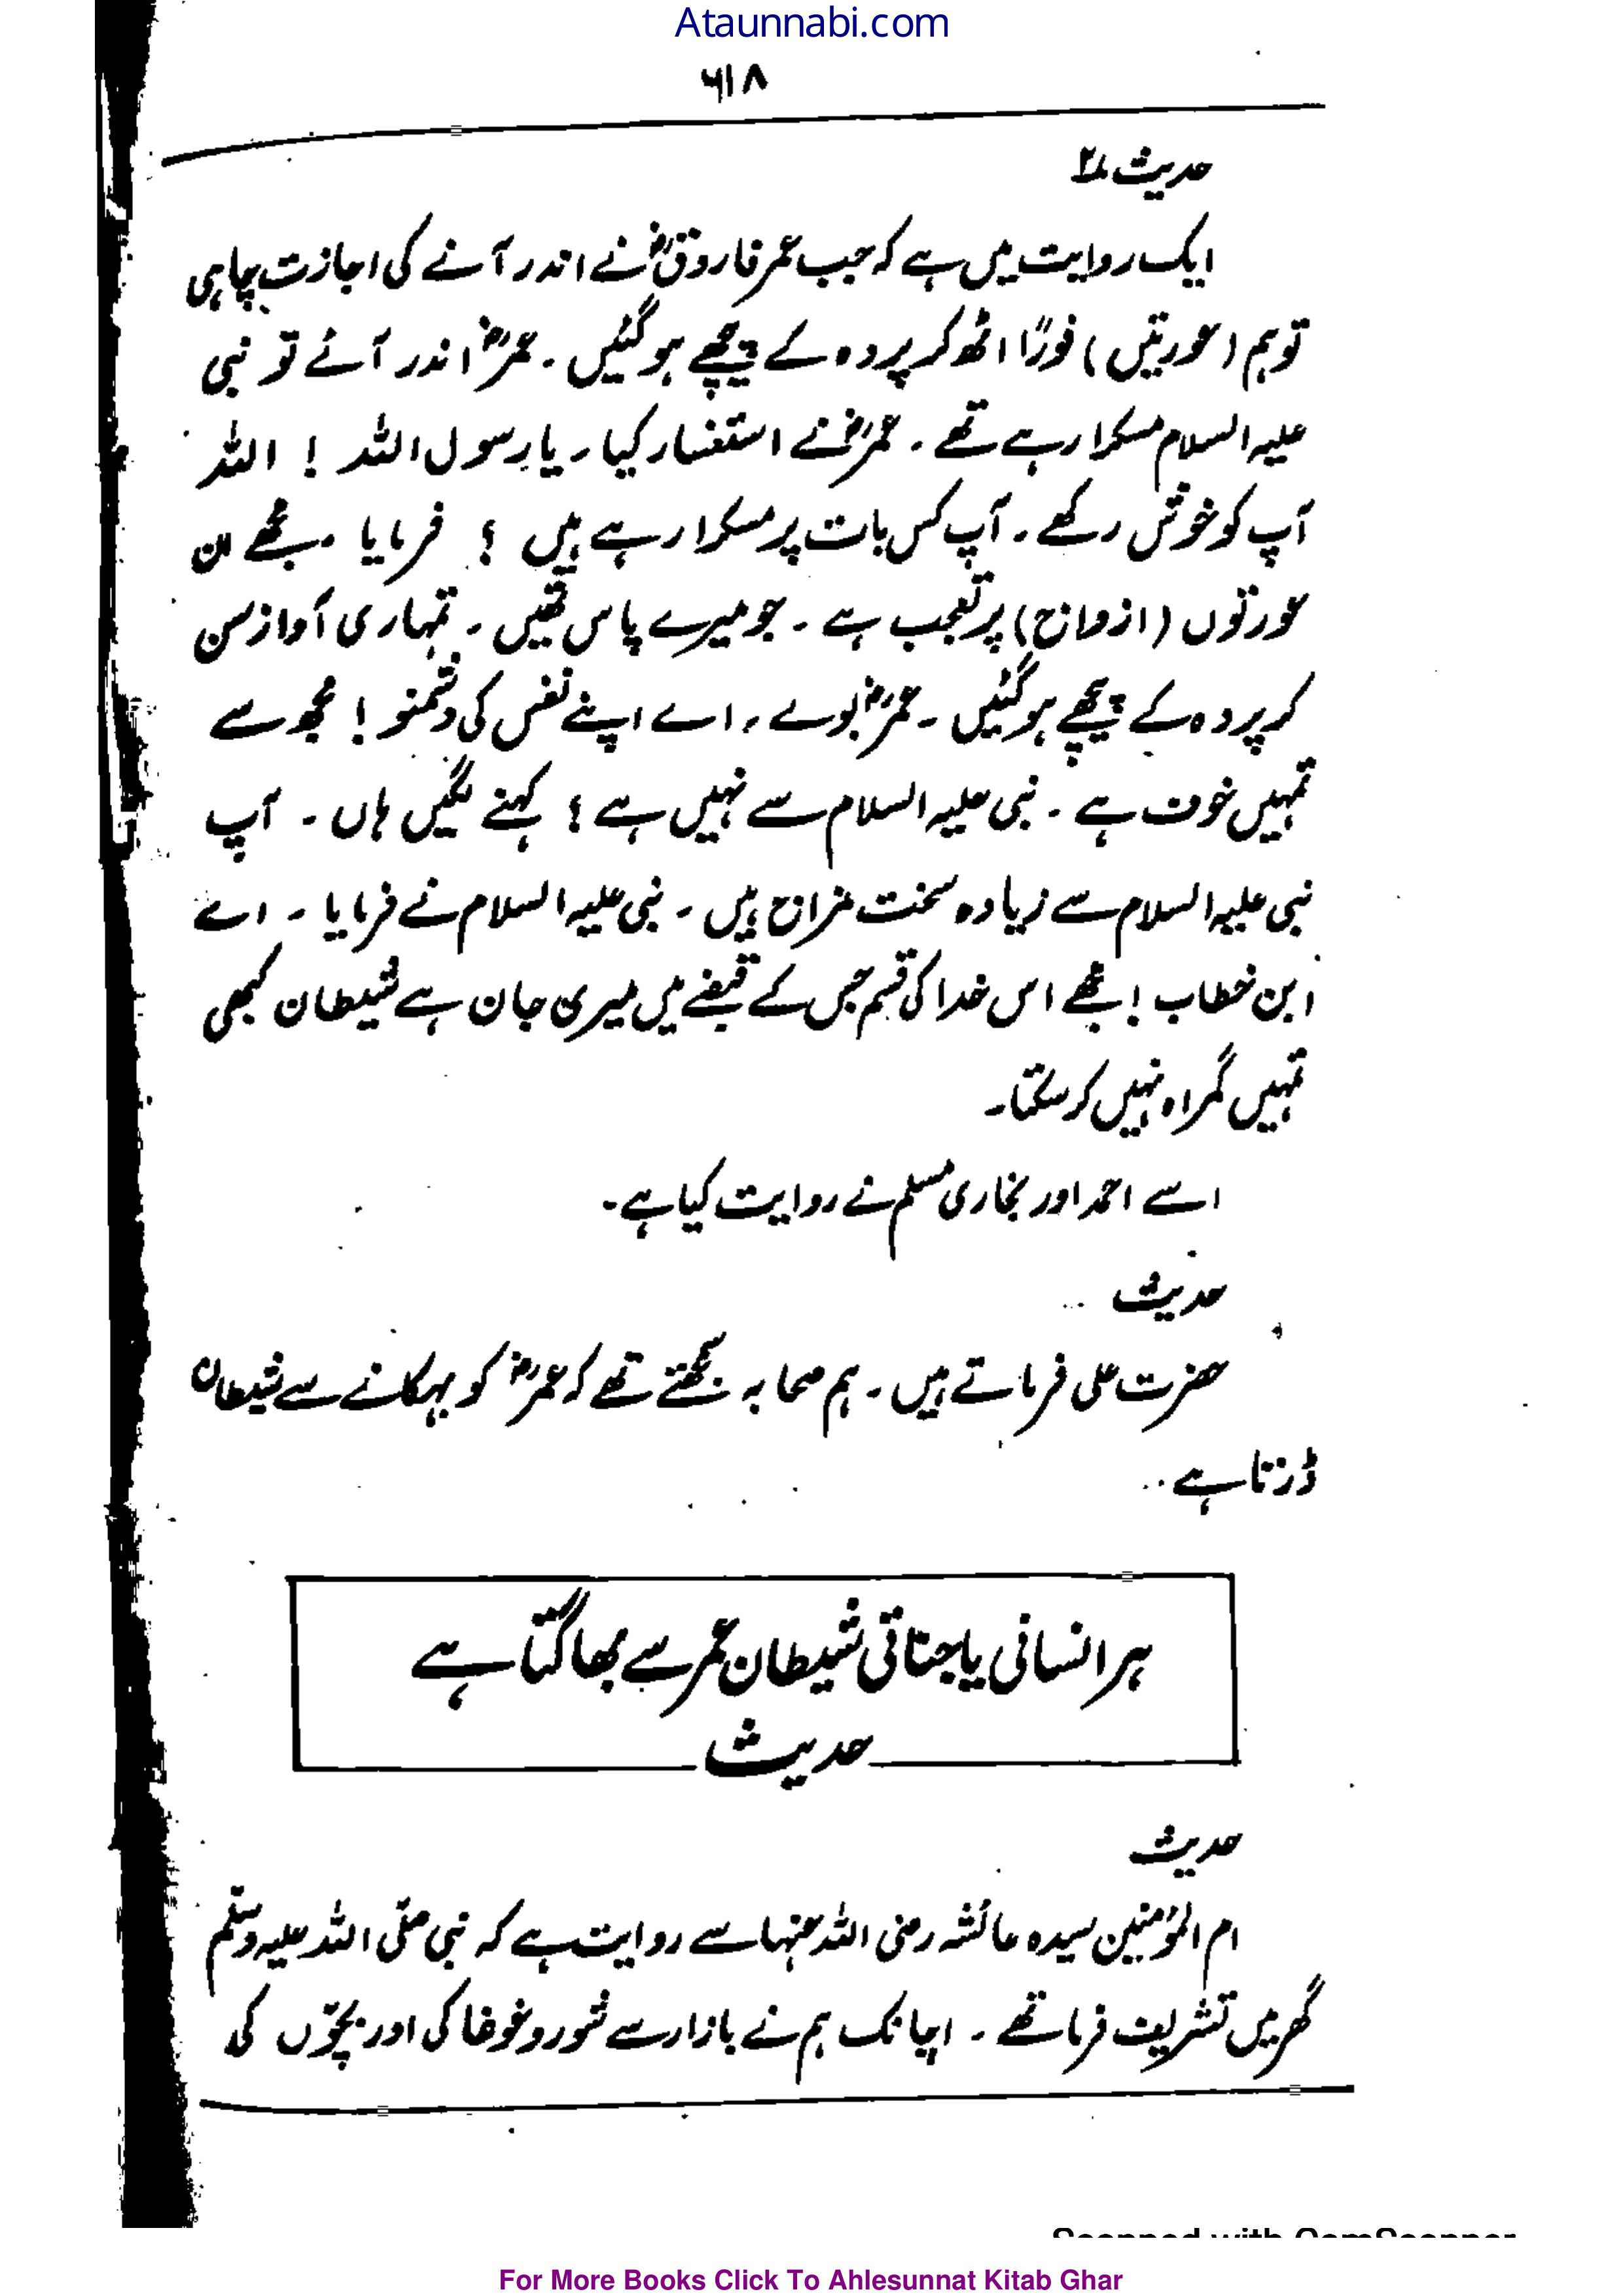 Ataunnabi.com
۶۱۸
حدیث ۲
ایک روایت میں ہے کہ جب عمر فاروقؓ نے اندر آنے کی اجازت چاہی
تو ہم (عورتیں) فوراً اٹھ کر پردہ کے پیچھے ہو گئیں ۔ عمرؓ اندر آئے تو نبی
علیہ السلام مسکرا رہے تھے ۔ عمرؓ نے استفسار کیا ۔ یا رسول اللہ ! اللہ
آپ کو خوش رکھے ۔ آپ کس بات پر مسکرا رہے ہیں ؟ فرمایا ۔ مجھے ان
عورتوں (ازواج) پر تعجب ہے ۔ جو میرے پاس تھیں ۔ تمہاری آواز سن
کر پردہ کے پیچھے ہو گئیں ۔ عمرؓ بولے ، اے اپنے نفس کی دشمنو ! مجھ سے
تمہیں خوف ہے ۔ نبی علیہ السلام سے نہیں ہے ؟ کہنے لگیں ہاں ۔ آپ
نبی علیہ السلام سے زیادہ سخت مزاج ہیں ۔ نبی علیہ السلام نے فرمایا ۔ اے
ابن خطاب ! مجھے اس خدا کی قسم جس کے قبضے میں میری جان ہے شیطان کبھی
تمہیں گمراہ نہیں کر سکتا ۔
اسے احمد اور بخاری مسلم نے روایت کیا ہے ۔
حدیث
حضرت علی فرماتے ہیں ۔ ہم صحابہ سمجھتے تھے کہ عمرؓ کو بہکانے سے شیطان
ڈرتا ہے ۔
ہر انسانی یا جناتی شیطان عمر سے بھاگتا ہے
حدیث
حدیث
ام المؤمنین سیدہ عائشہ رضی اللہ عنہا سے روایت ہے کہ نبی صلّی اللہ علیہ وسلّم
گھر میں تشریف فرما تھے ۔ اچانک ہم نے بازار سے شور و غوغا کی اور بچّوں کی
Scanned with CamScanner
For More Books Click To Ahlesunnat Kitab Ghar